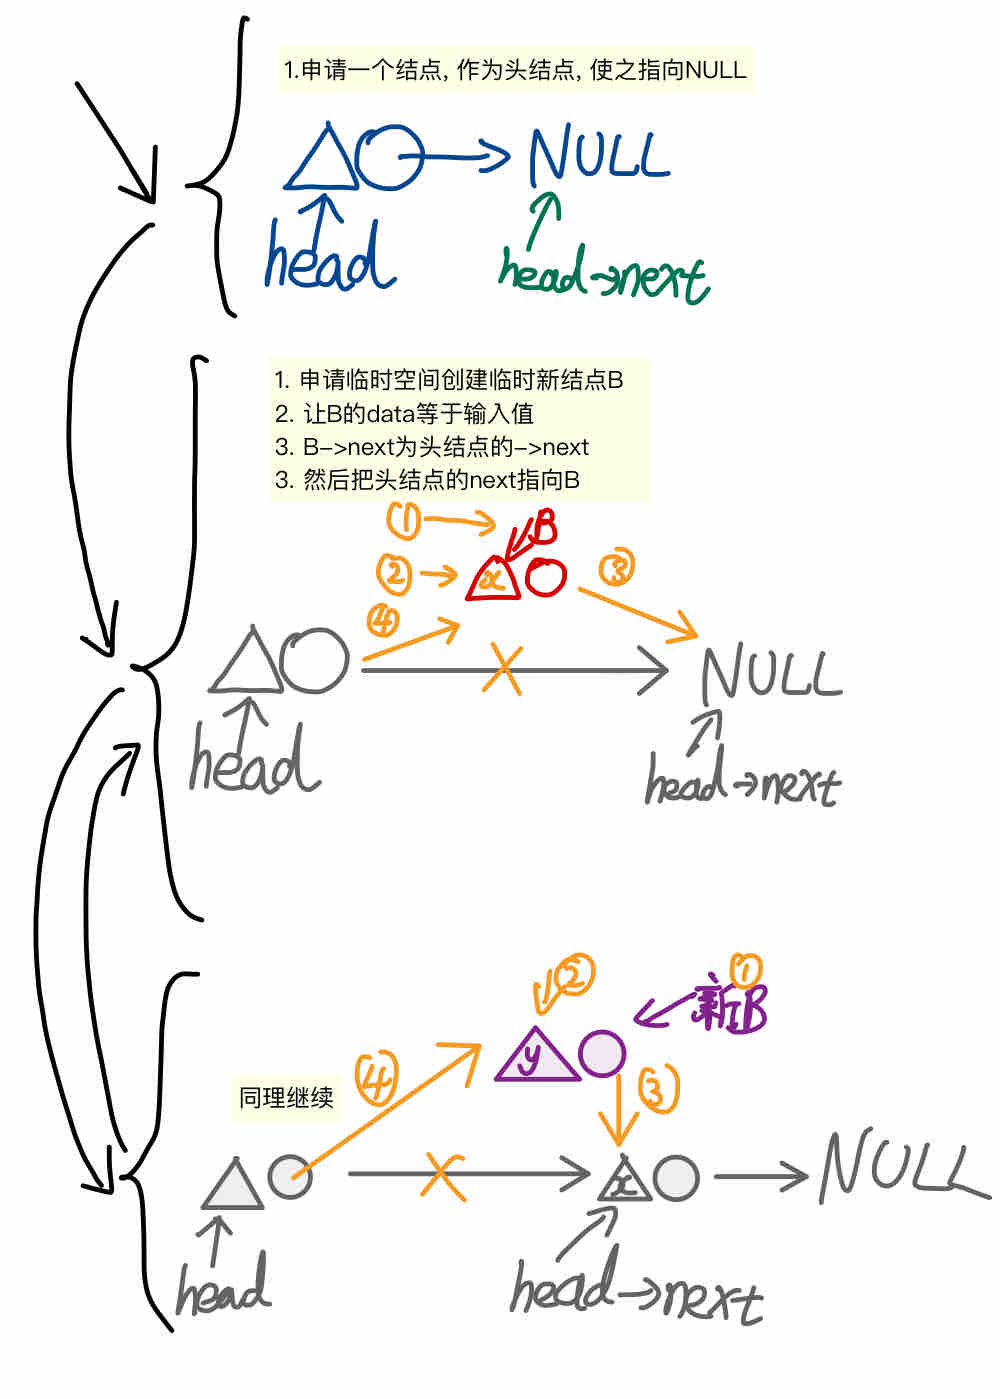 1.申请一个结点, 作为头结点, 使之指向NULL
NULL
head
head→next
1. 申请临时空间创建临时新结点B
2. 让B的data等于输入值
3. B->next为头结点的->next
3. 然后把头结点的next指向B
① B
② x ③
④
NULL
head
head→next
② ①
新B
y
④ ③
同理继续
x NULL
head head→next